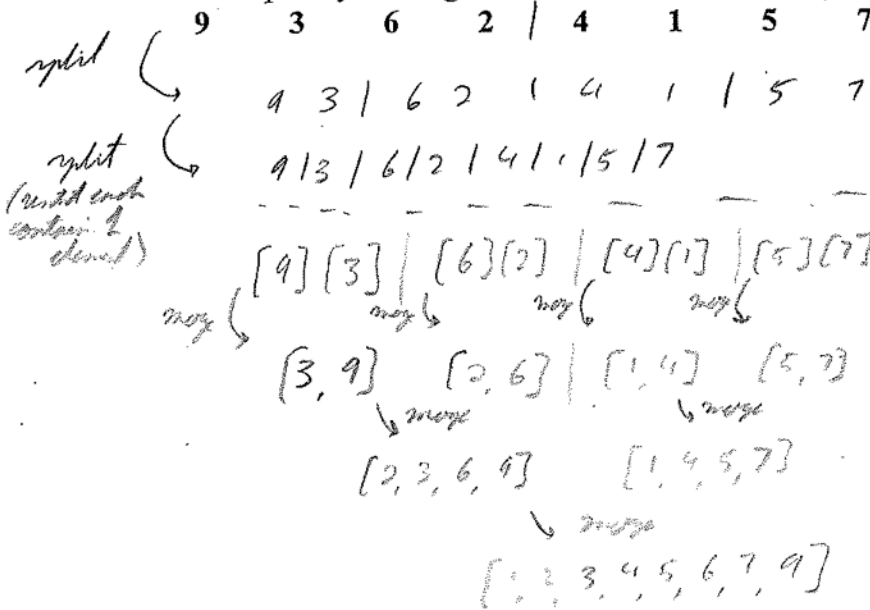 9 3 6 2 | 4 1 5 7
split
9 3 | 6 2 | 4 1 | 5 7
split
9 | 3 | 6 | 2 | 4 | 1 | 5 | 7
( each
contain 1
)
[9] [3] | [6] [2] | [4] [1] | [5] [7]
merge merge merge merge
[3, 9] [2, 6] | [1, 4] [5, 7]
merge merge
[2, 3, 6, 9] [1, 4, 5, 7]
merge
[1, 2, 3, 4, 5, 6, 7, 9]